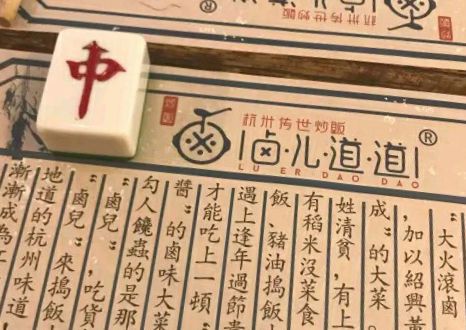 中
杭卅传世炒飯
®
炒飯
杭卅传世炒飯
卤·儿·道·道
®
LU ER DAO DAO
"大火滾鹵
,加以紹興黃
成"的大菜
姓清貧,有上
有稻米沒菜食
飯、豬油搗飯
遇上逢年過節
才能吃上一頓"
醬"的鹵味大菜
勾人饞蟲的是那
鹵兒",吃貨
"鹵兒"來搗飯
地道的杭州味道
漸漸成為